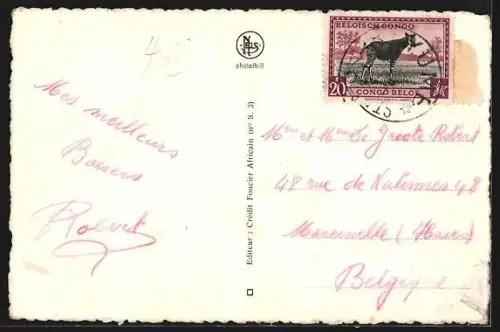 4
NELS
photothill
BELGISCH CONGO
20
CONGO BELGE
Mes meilleurs
Baisers
Robert
Editeur : Crédit Foncier Africain (nº S. 3)
et De Groote Robert
48 rue de 48
Marcinelle (Hain)
Belgique